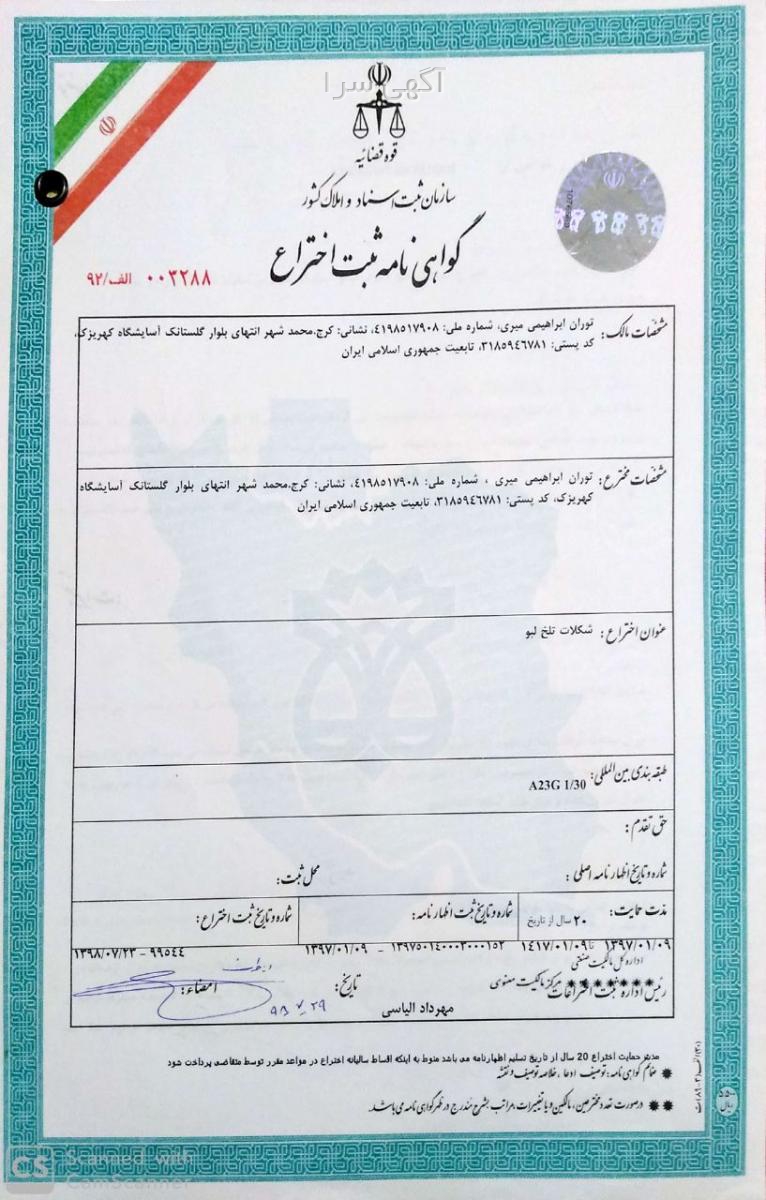 آگهی سرا
قوه قضائیه
سازمان ثبت اسناد و املاک کشور
گواهی نامه ثبت اختراع
۰۰۳۲۸۸ الف/۹۲
مشخصات مالک: توران ابراهیمی میری، شماره ملی: ۴۱۹۸۵۱۷۹۰۸، نشانی: کرج،محمد شهر انتهای بلوار گلستانک آسایشگاه کهریزک،
کد پستی: ۳۱۸۵۹۴۶۷۸۱، تابعیت جمهوری اسلامی ایران
مشخصات مخترع: توران ابراهیمی میری ، شماره ملی: ۴۱۹۸۵۱۷۹۰۸، نشانی: کرج،محمد شهر انتهای بلوار گلستانک آسایشگاه
کهریزک، کد پستی: ۳۱۸۵۹۴۶۷۸۱، تابعیت جمهوری اسلامی ایران
عنوان اختراع: شکلات تلخ لبو
طبقه بندی بین المللی: A23G 1/30
حق تقدم:
شماره و تاریخ اظهارنامه اصلی: محل ثبت:
مدت حمایت: ۲۰ سال از تاریخ شماره و تاریخ ثبت اظهارنامه: شماره و تاریخ ثبت اختراع:
۱۳۹۷/۰۱/۰۹ تا ۱۴۱۷/۰۱/۰۹ ۱۳۹۷۵۰۱۴۰۰۰۳۰۰۰۱۵۲ - ۱۳۹۷/۰۱/۰۹ ۹۹۵۴۴ - ۱۳۹۸/۰۷/۲۳
اداره کل مالکیت صنعتی
رئیس اداره ثبت اختراعات مرکز مالکیت معنوی تاریخ: امضاء:
مهرداد الیاسی ۹۸ ۷ ۲۹
مدت حمایت اختراع 20 سال از تاریخ تسلیم اظهارنامه می باشد منوط به اینکه اقساط سالیانه اختراع در مواعد مقرر توسط متقاضی پرداخت شود
✹ ضمائم گواهی نامه: توصیف، ادعا، خلاصه توصیف و نقشه
✹✹ در صورت تعدد مخترعین، مالکین و یا تغییرات، مراتب بشرح مندرج در ظهر گواهی نامه می باشد.
ریال
CS Scanned with
CamScanner